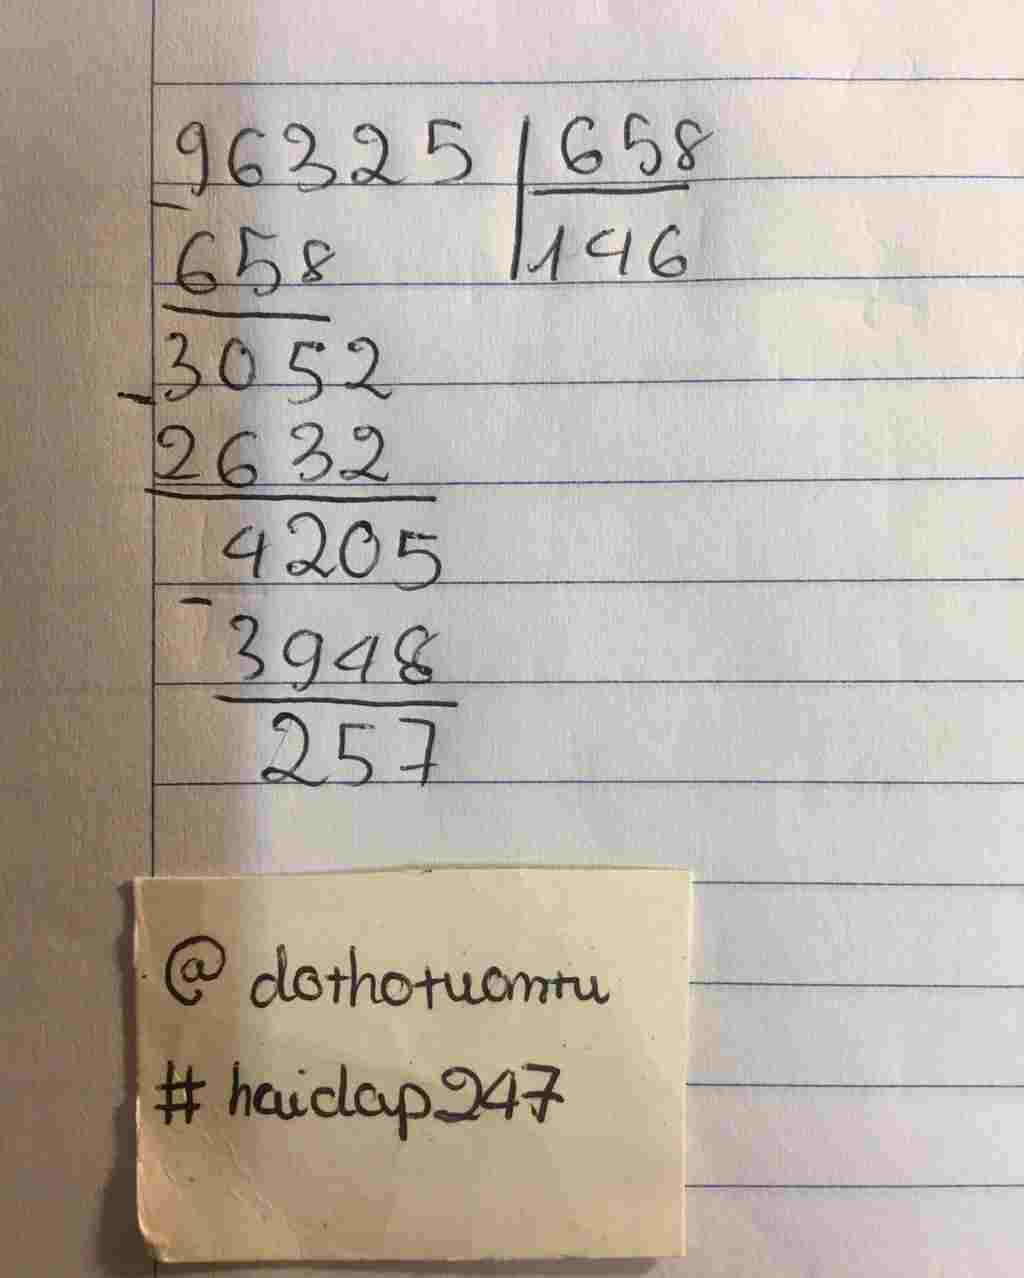 96325 658
- 658 146
3052
- 2632
4205
- 3948
257
@ dothotuantu
# haidap247